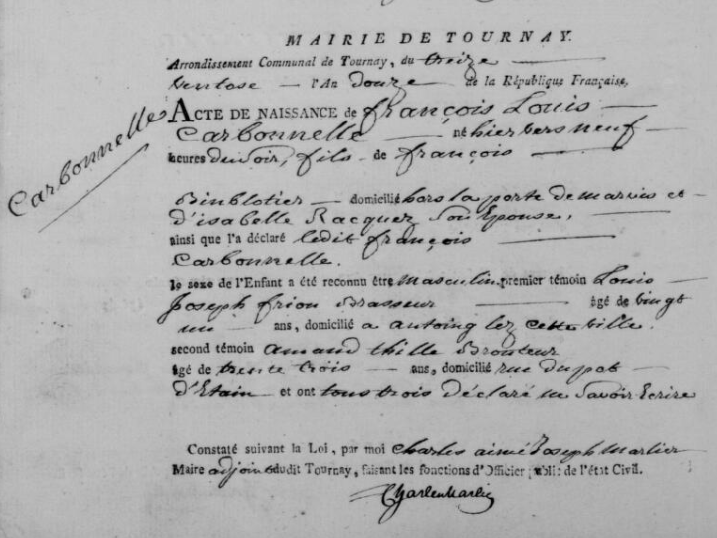 MAIRIE DE TOURNAY.
Arrondissement Communal de Tournay, du treize
Ventose l'An douze de la République Française,
ACTE DE NAISSANCE de françois Louis
Carbonnelle né hier vers neuf
heures du soir, fils de françois
Carbonnelles
domicilié hors la porte de marvis et
d'isabelle Racquez son Epouse,
ainsi que l'a déclaré ledit françois
Carbonnelle.
le sexe de l'Enfant a été reconnu être masculin. premier témoin Louis
Joseph frion Brasseur âgé de vingt
un ans, domicilié a antoing lez cette ville.
second témoin amand thille Brouteur
âgé de trente trois ans, domicilié rue du pot
d'Etain et ont tous trois déclaré ne Savoir Ecrire
Constaté suivant la Loi, par moi Charles aimé Joseph Marlier
Maire adjoint dudit Tournay, faisant les fonctions d'Officier publ: de l'état Civil.